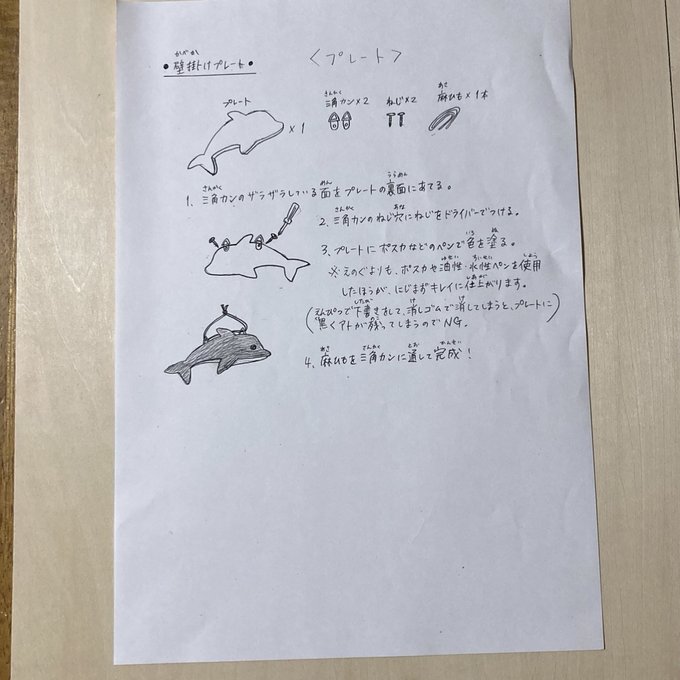 •壁掛けプレート•
〈プレート〉
プレート ×1
三角カン×2
ねじ×2
麻ひも×1本
1、三角カンのザラザラしている面をプレートの裏面にあてる。
2、三角カンのねじ穴にねじをドライバーでつける。
3、プレートにポスカなどのペンで色を塗る。
※えのぐよりも、ポスカや油性・水性ペンを使用
したほうが、にじまずキレイに仕上がります。
(えんぴつで下書きをして、消しゴムで消してしまうと、プレートに
黒くアトが残ってしまうのでNG.)
4、麻ひもを三角カンに通して完成!